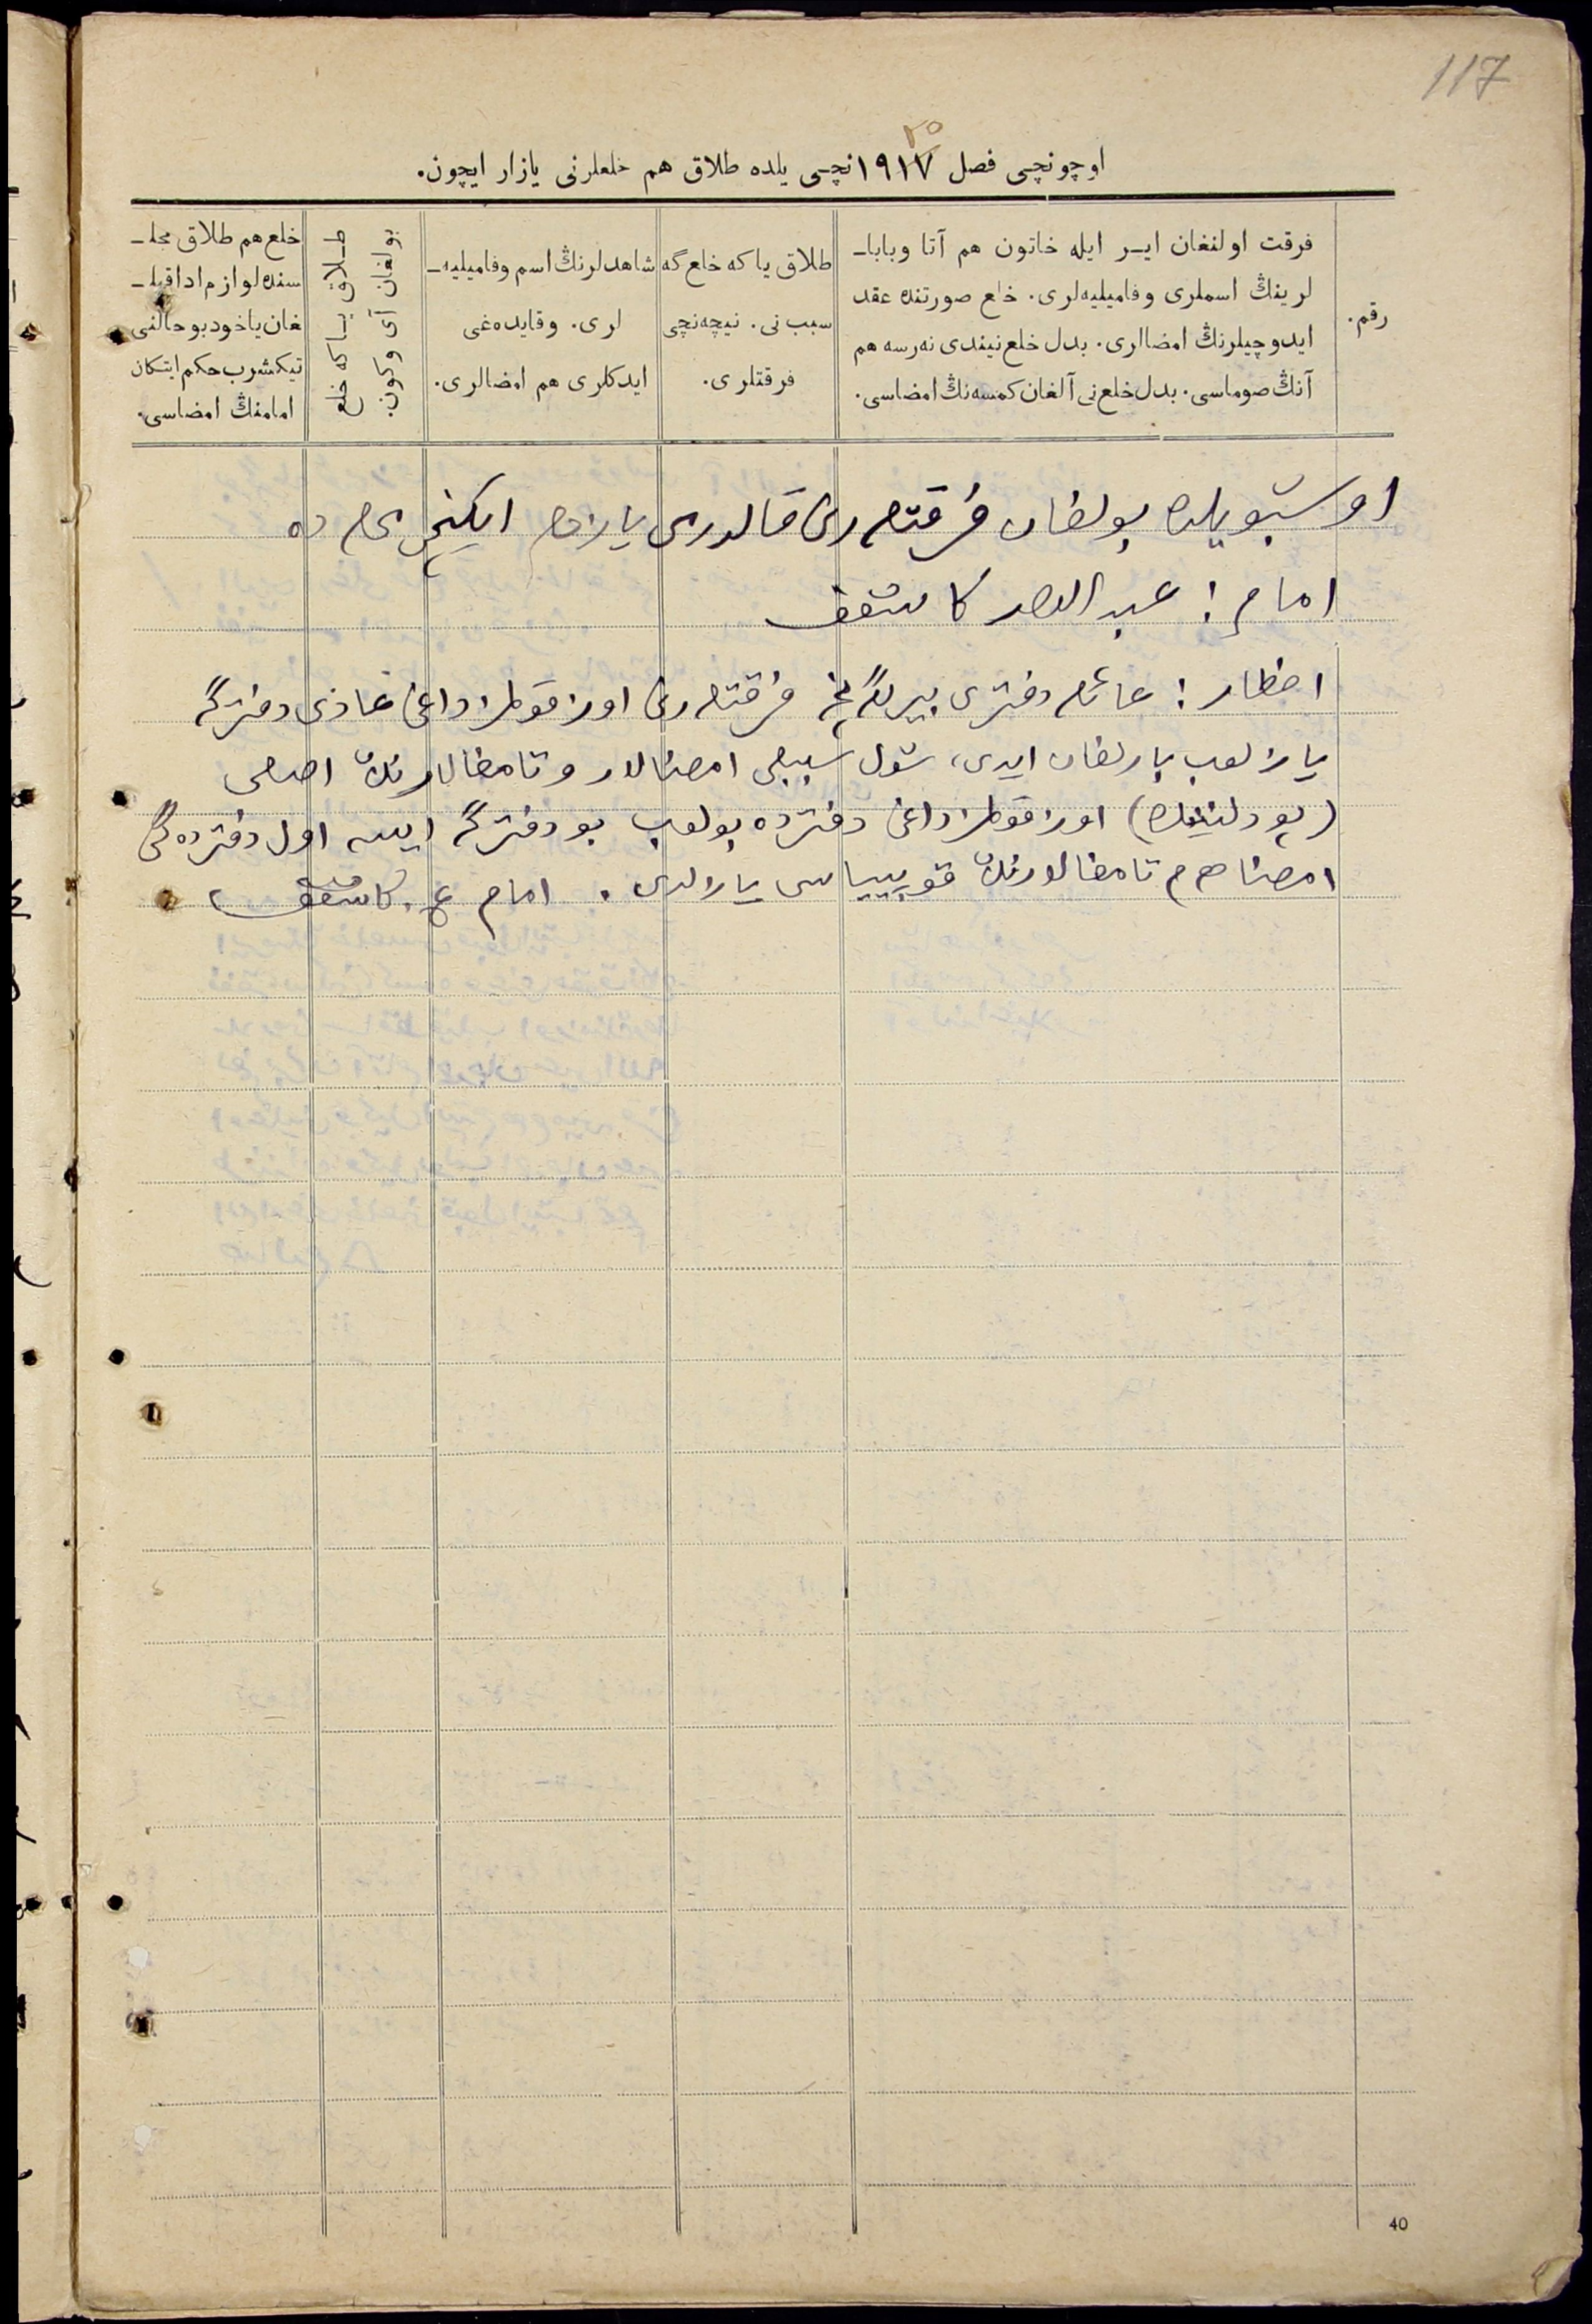 117
٢٥
اوچونچی فصل ١٩١٧نچی یلده طلاق هم خلعلرنی یازار ایچون.
رقم.
فرقت اولنغان ایـر ایله خاتون هم آتا وبابا-
لرینڭ اسملری وفامیلیه‌لری. خلع صورتنده عقد
ایدوچیلرنڭ امضالری. بدل خلع نیندی نه‌رسه هم
آنڭ صوماسی. بدل خلع نی آلغان کمسه‌نڭ امضاسی.
طلاق یا که خلع گه
سبب نی. نیچه‌نچی
فرقتلری.
شاهدلرنڭ اسم وفامیلیه-
لری. وقایده‌غی
ایدکلری هم امضالری.
طـلاق یـا که خلع
بولغان آی وکون.
خلع هم طلاق مجلـ
سنده لوازم ادا قیلـ
غان یاخود بو حالنی
تیکشرب حکم ایتکان
امامنڭ امضاسی.
اوشبو یلده بولغان فرقتلرنی قالدری یازدم ایکنچی
امام: عبد کاشفف
اخطار: عائله دفتری بیرلگنچه فرقتلرنی اوز قولمزداغی عادی دفترگه
یازلب بارلغان ایدی، شول سببلی امضالار وتامغالارنڭ اصلی
اوز قولمزداغی دفترده بولب بو دفترگه ایسه اول دفترده گی
امضا هم تامغالارنڭ قوپییاسی یازلدی. امام ع. کاشفف
40